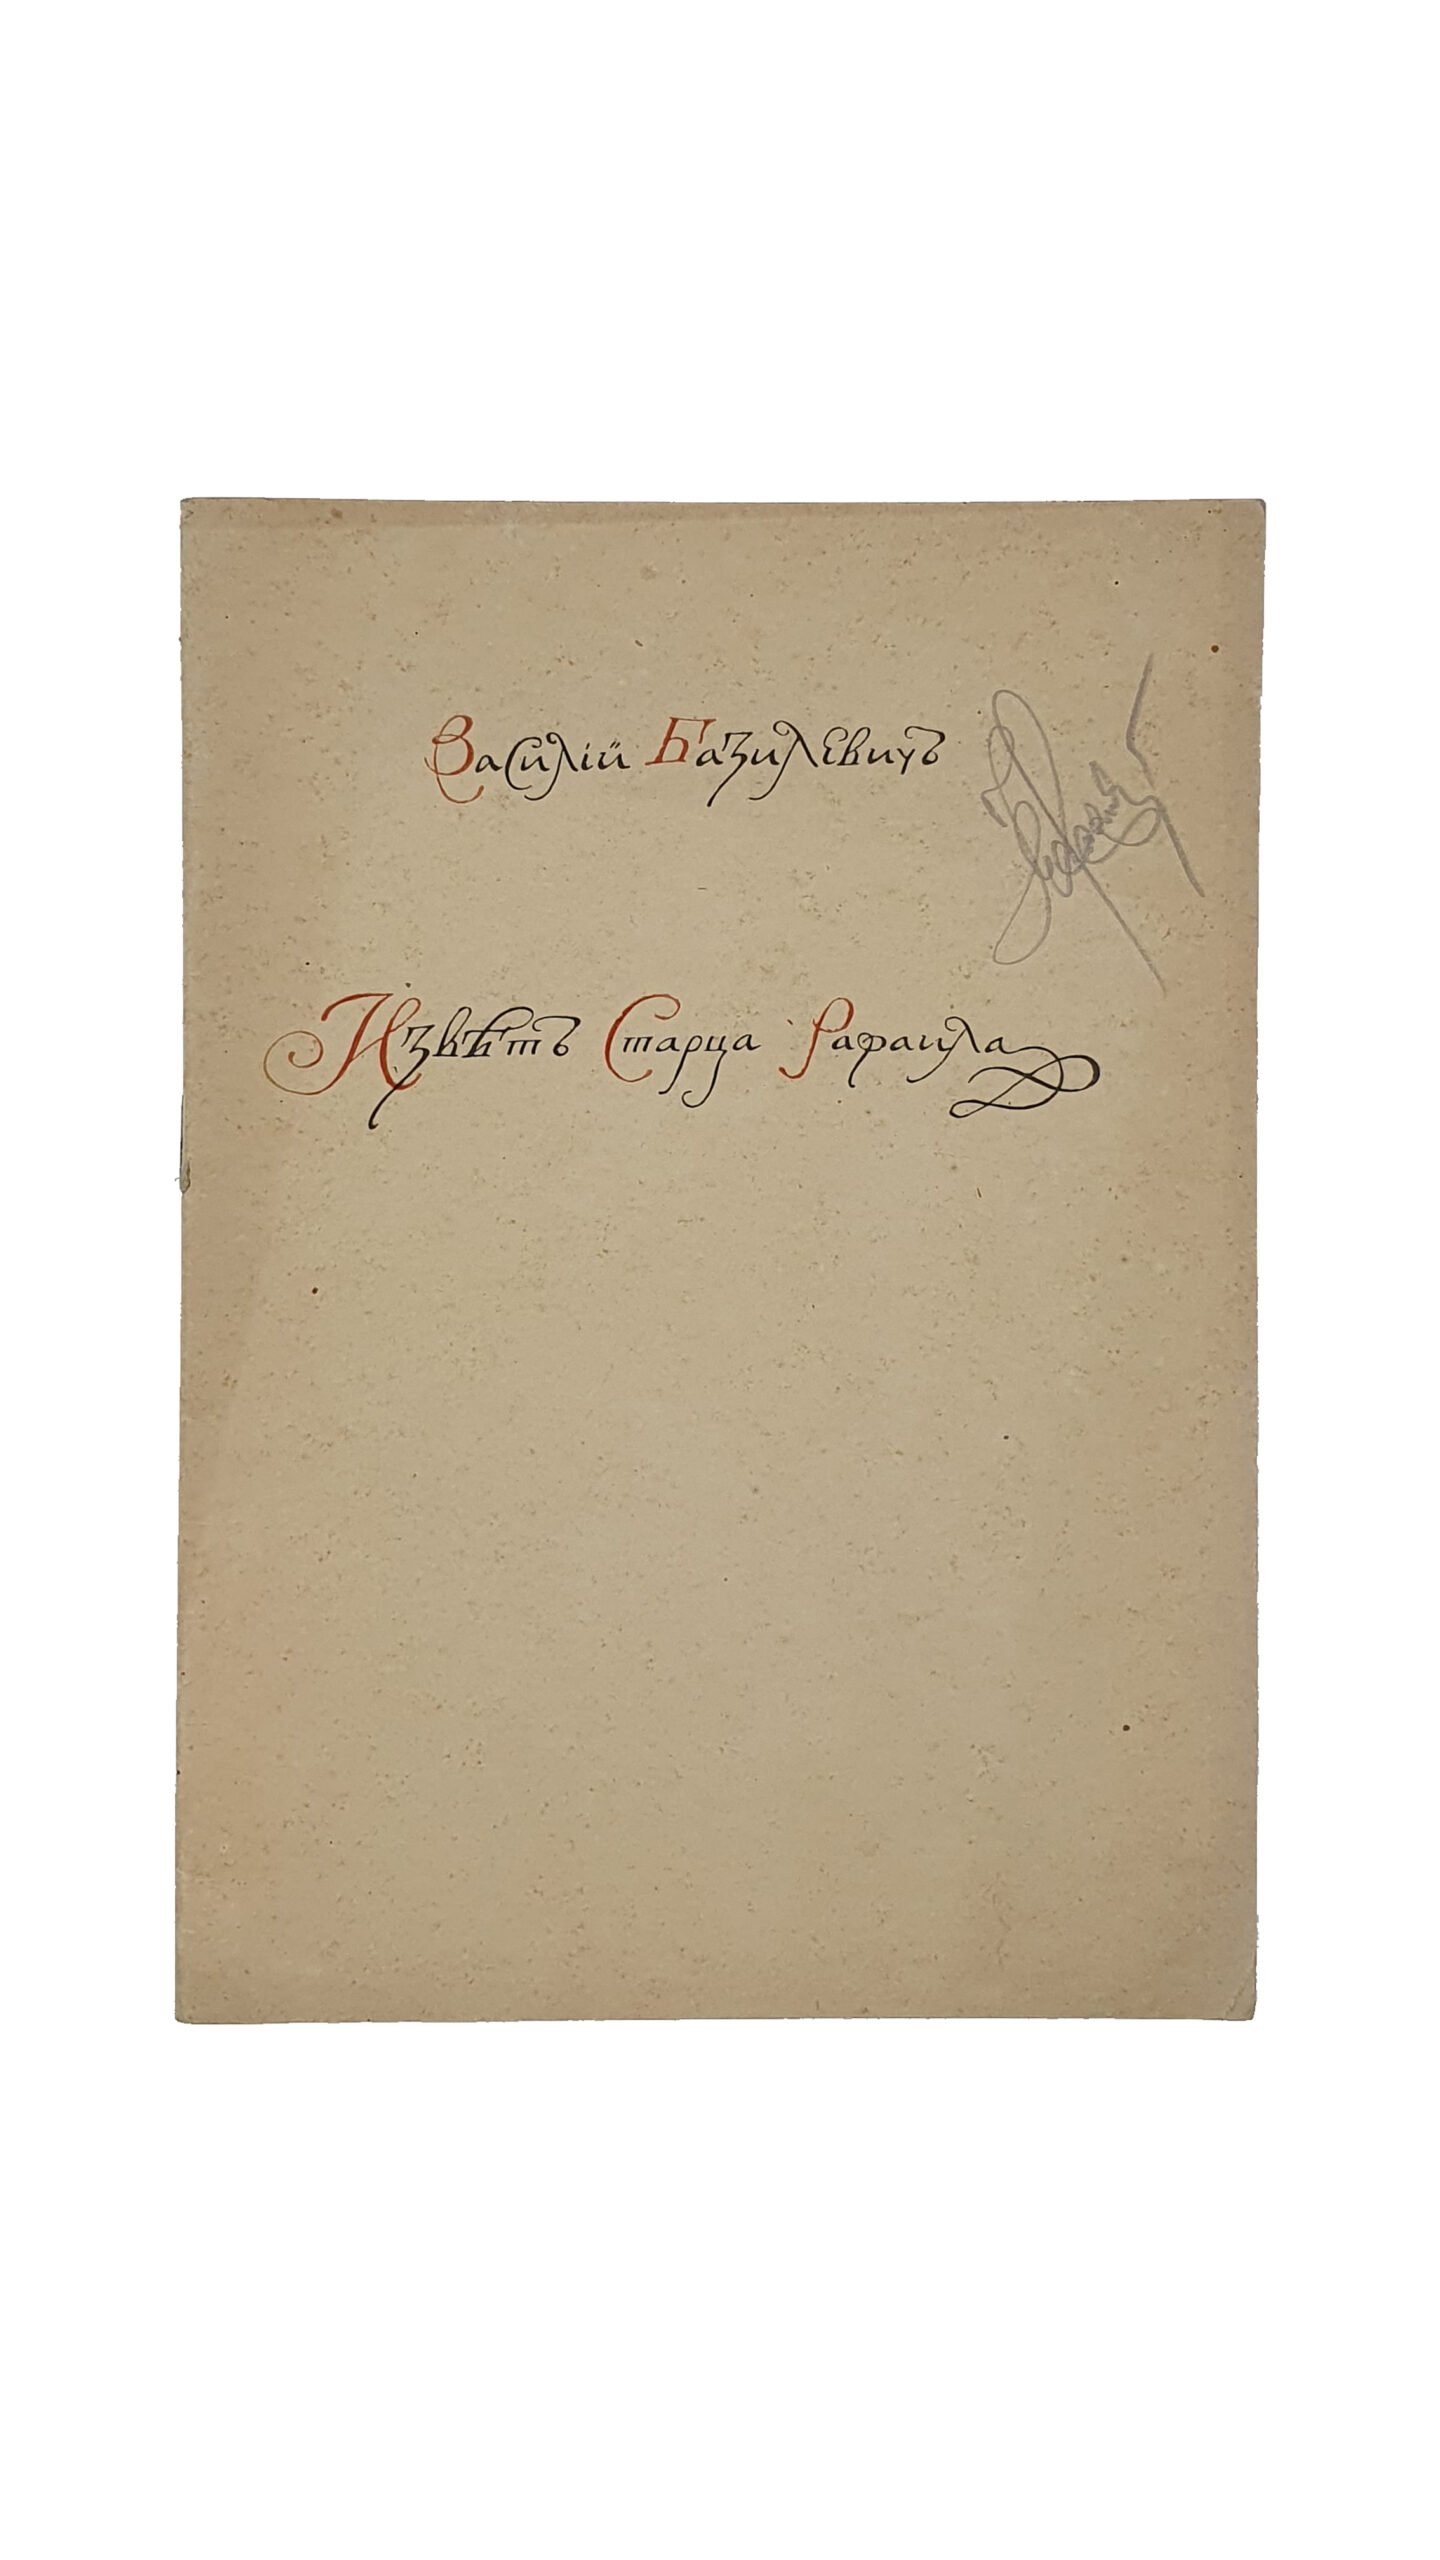 Василій Базилевичъ
Извѣтъ Старца Рафаила